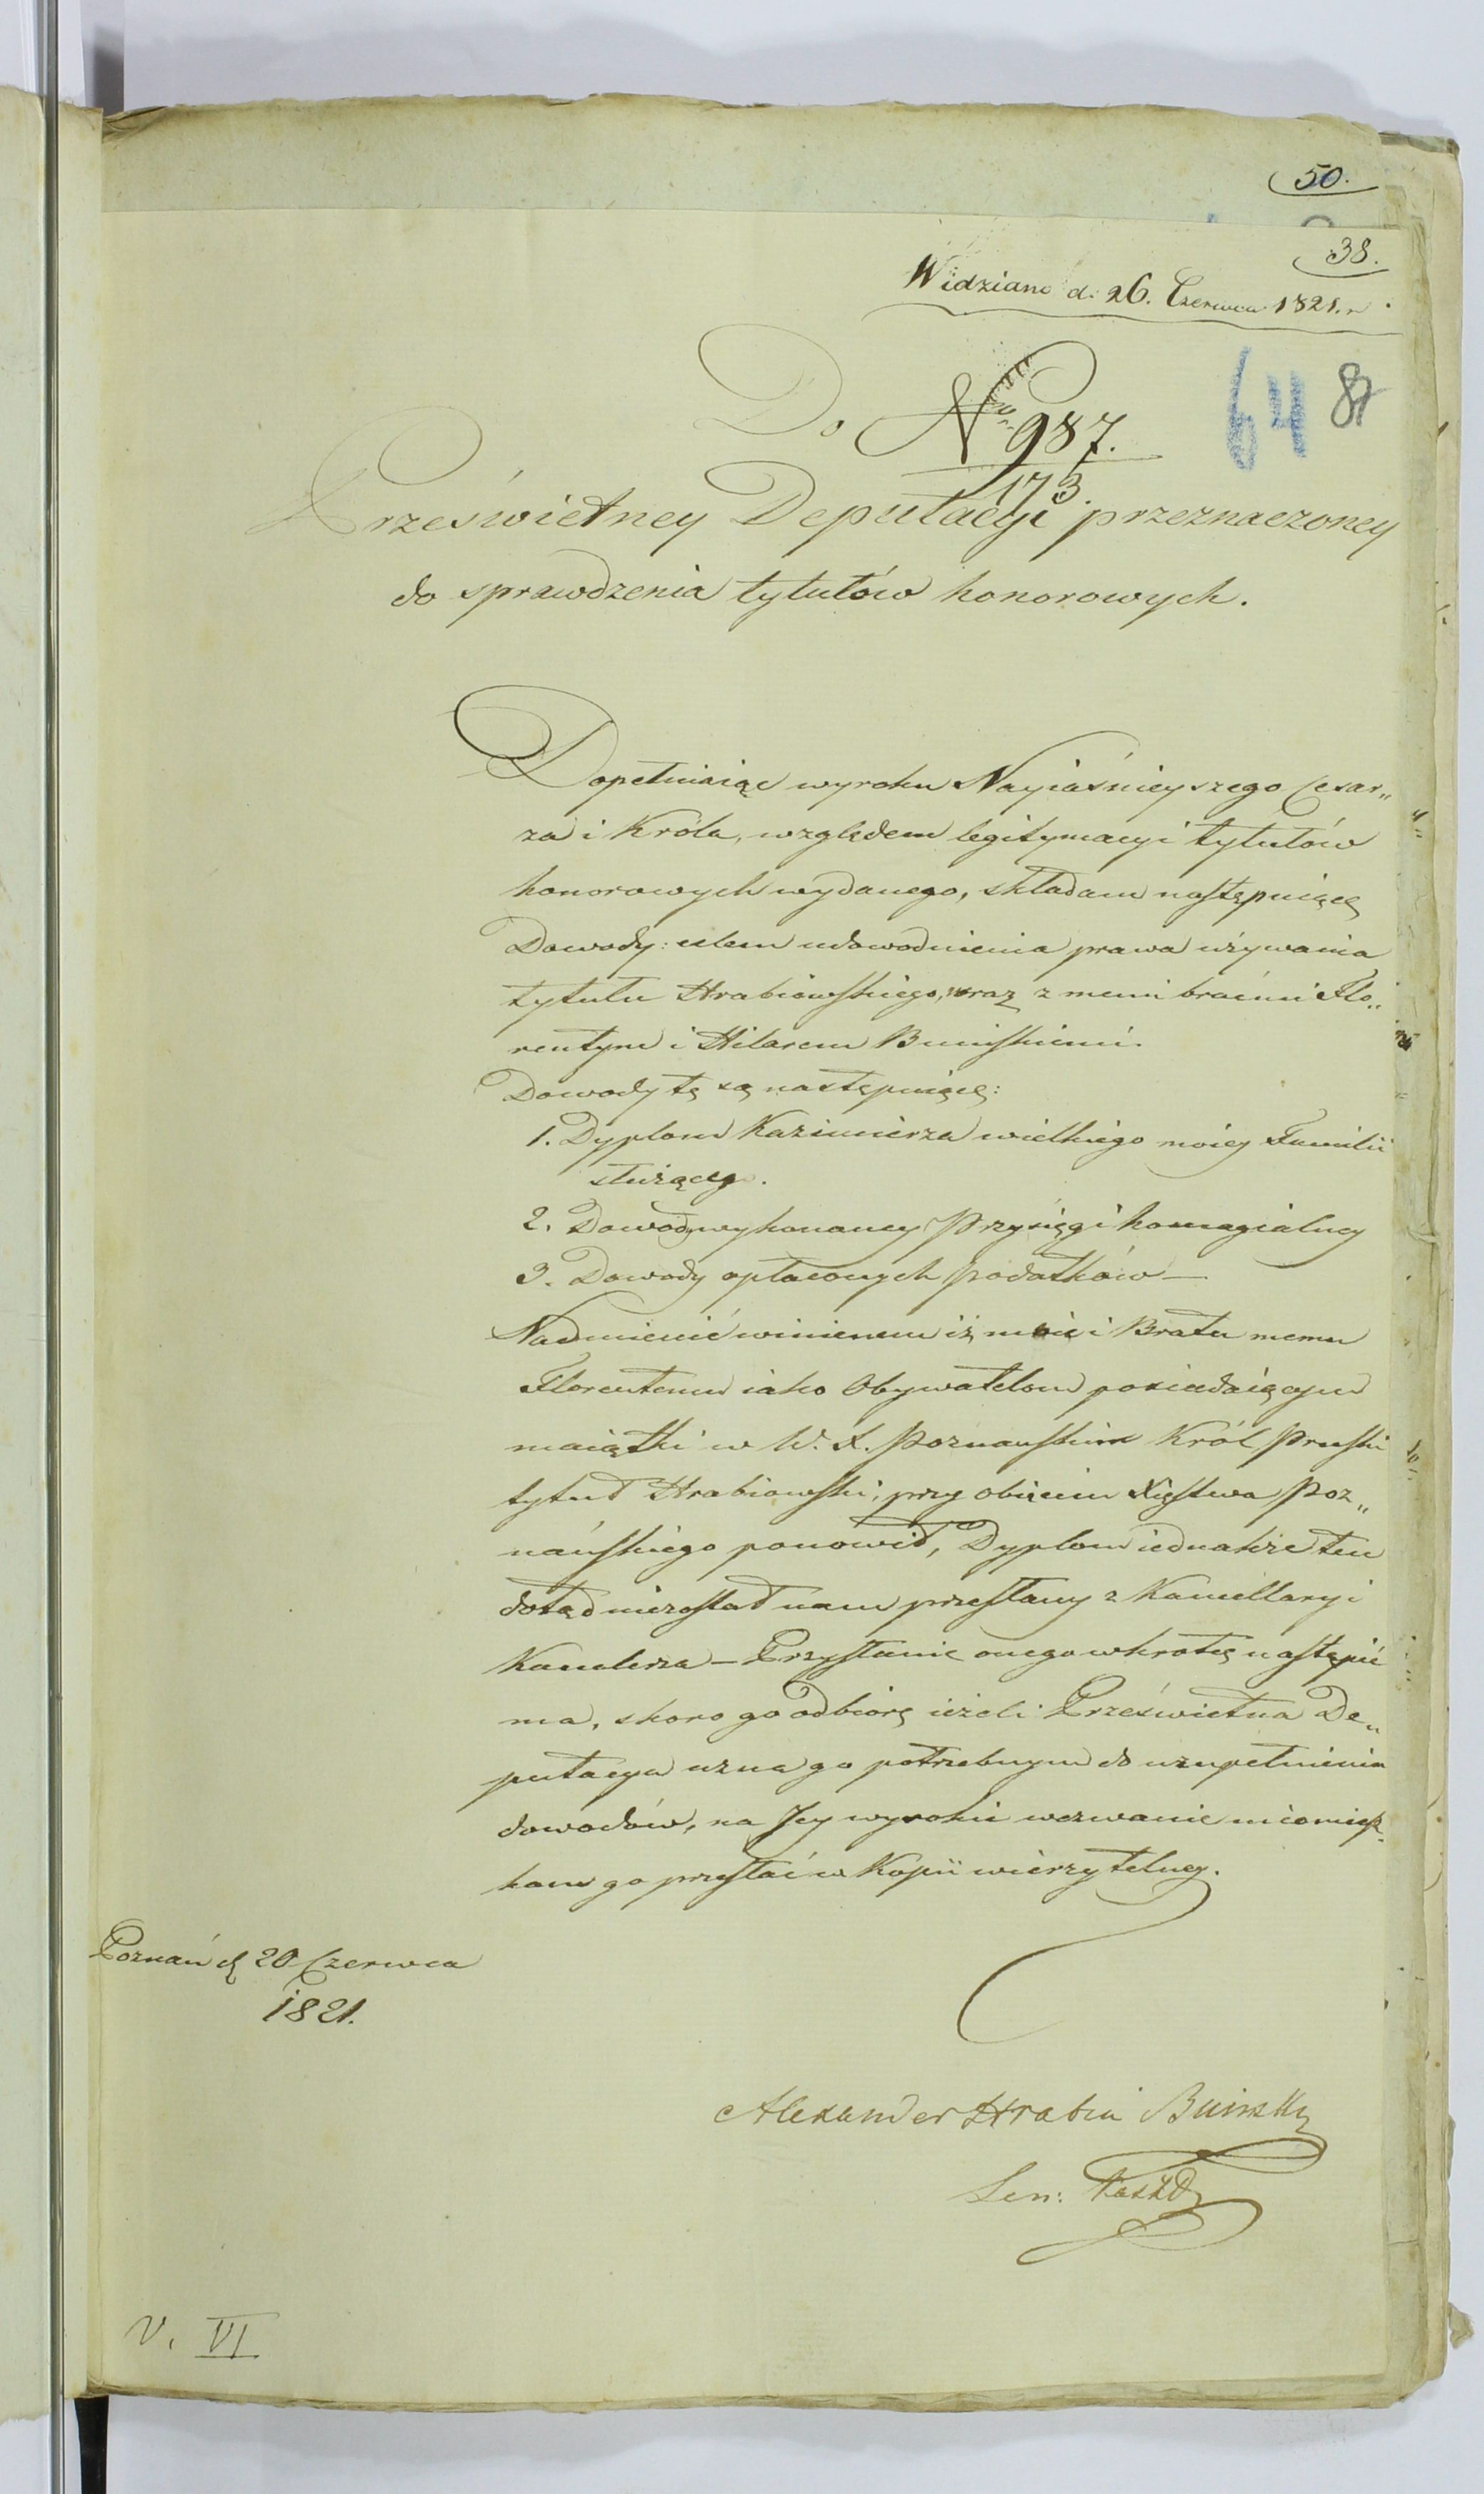 50.
38.
Widziano d. 26. Czerwca 1821. r.
Do No 987.
173.
64 87
Prześwietney Deputacyi przeznaczoney
do sprawdzenia tytułów honorowych.
Dopełniaiąc wyroku Nayiaśnieyszego Cesar„
za i Króla, względem legitymacyi tytułów
honorowych wydanego, składam następuiącę
Dowody: celem udowodnienia prawa używania
tytułu Hrabiowskiego, wraz z memi braćmi Flo„
rentym i Hilarem Bnińskiemi.
Dowody tę są następuiącę:
1. Dyplom Kazimierza wielkiego moiey Familii
służący.
2. Dowody wykonaney Przysięgi homagialney
3. Dowody opłaconych podatków —
Nadmienić winienem iż mnie i Bratu memu
Florentemu iako Obywatelom posiadaiącym
maiątki w W. X. Poznańskim Król Pruski
tytuł Hrabiowski, przy obięciu Xięstwa Poz„
nańskiego ponowił, Dyplom iednakże ten
dotąd niezostał nam przesłany z Kancellaryi
Kanclerza — Przysłanie onego wkrótcę nastąpić
ma, skoro go odbiorę ieżeli Prześwietna De„
putacya uzna go potrzebnym do uzupełnienia
dowodów, na Jey wysokie wezwanie niomiesz„
kam go przesłać w Kopii wierzytelney.
Poznań d. 20 Czerwca
1821.
Alexander Hrabia Bninski
Sen: Kaszt
V. VI